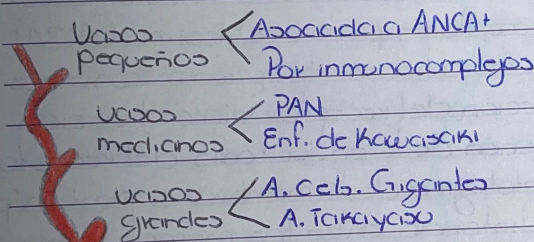 Vasos pequeños
Asociada a ANCA+
Por inmunocomplejos
Vasos medianos
PAN
Enf. de Kawasaki
Vasos grandes
A. Cels. Gigantes
A. Takayasu